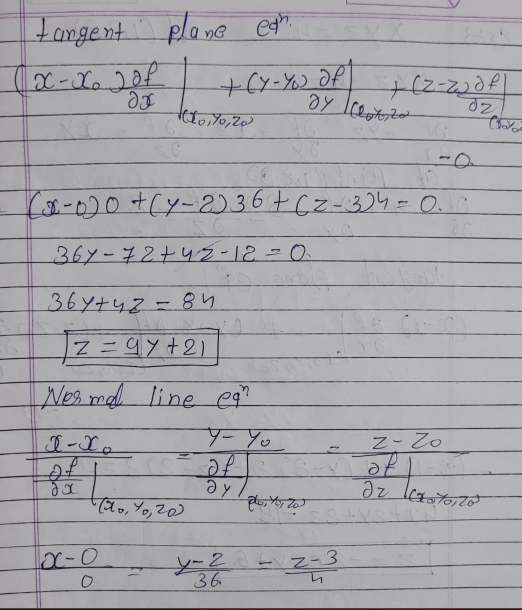 tangent plane eqⁿ.
(x-x₀)∂f/∂x|(x₀,y₀,z₀) + (y-y₀)∂f/∂y|(x₀,y₀,z₀) + (z-z₀)∂f/∂z|(x₀y₀
-0.
(x-0)0+(y-2)36+(z-3)4=0.
36y-72+4z-12=0.
36y+4z=84
z=9y+21
Normal line eqⁿ
x-x₀/∂f/∂x|(x₀,y₀,z₀) = y-y₀/∂f/∂y|(x₀,y₀,z₀) = z-z₀/∂f/∂z|(x₀,y₀,z₀)
x-0/0 = y-2/36 = z-3/4